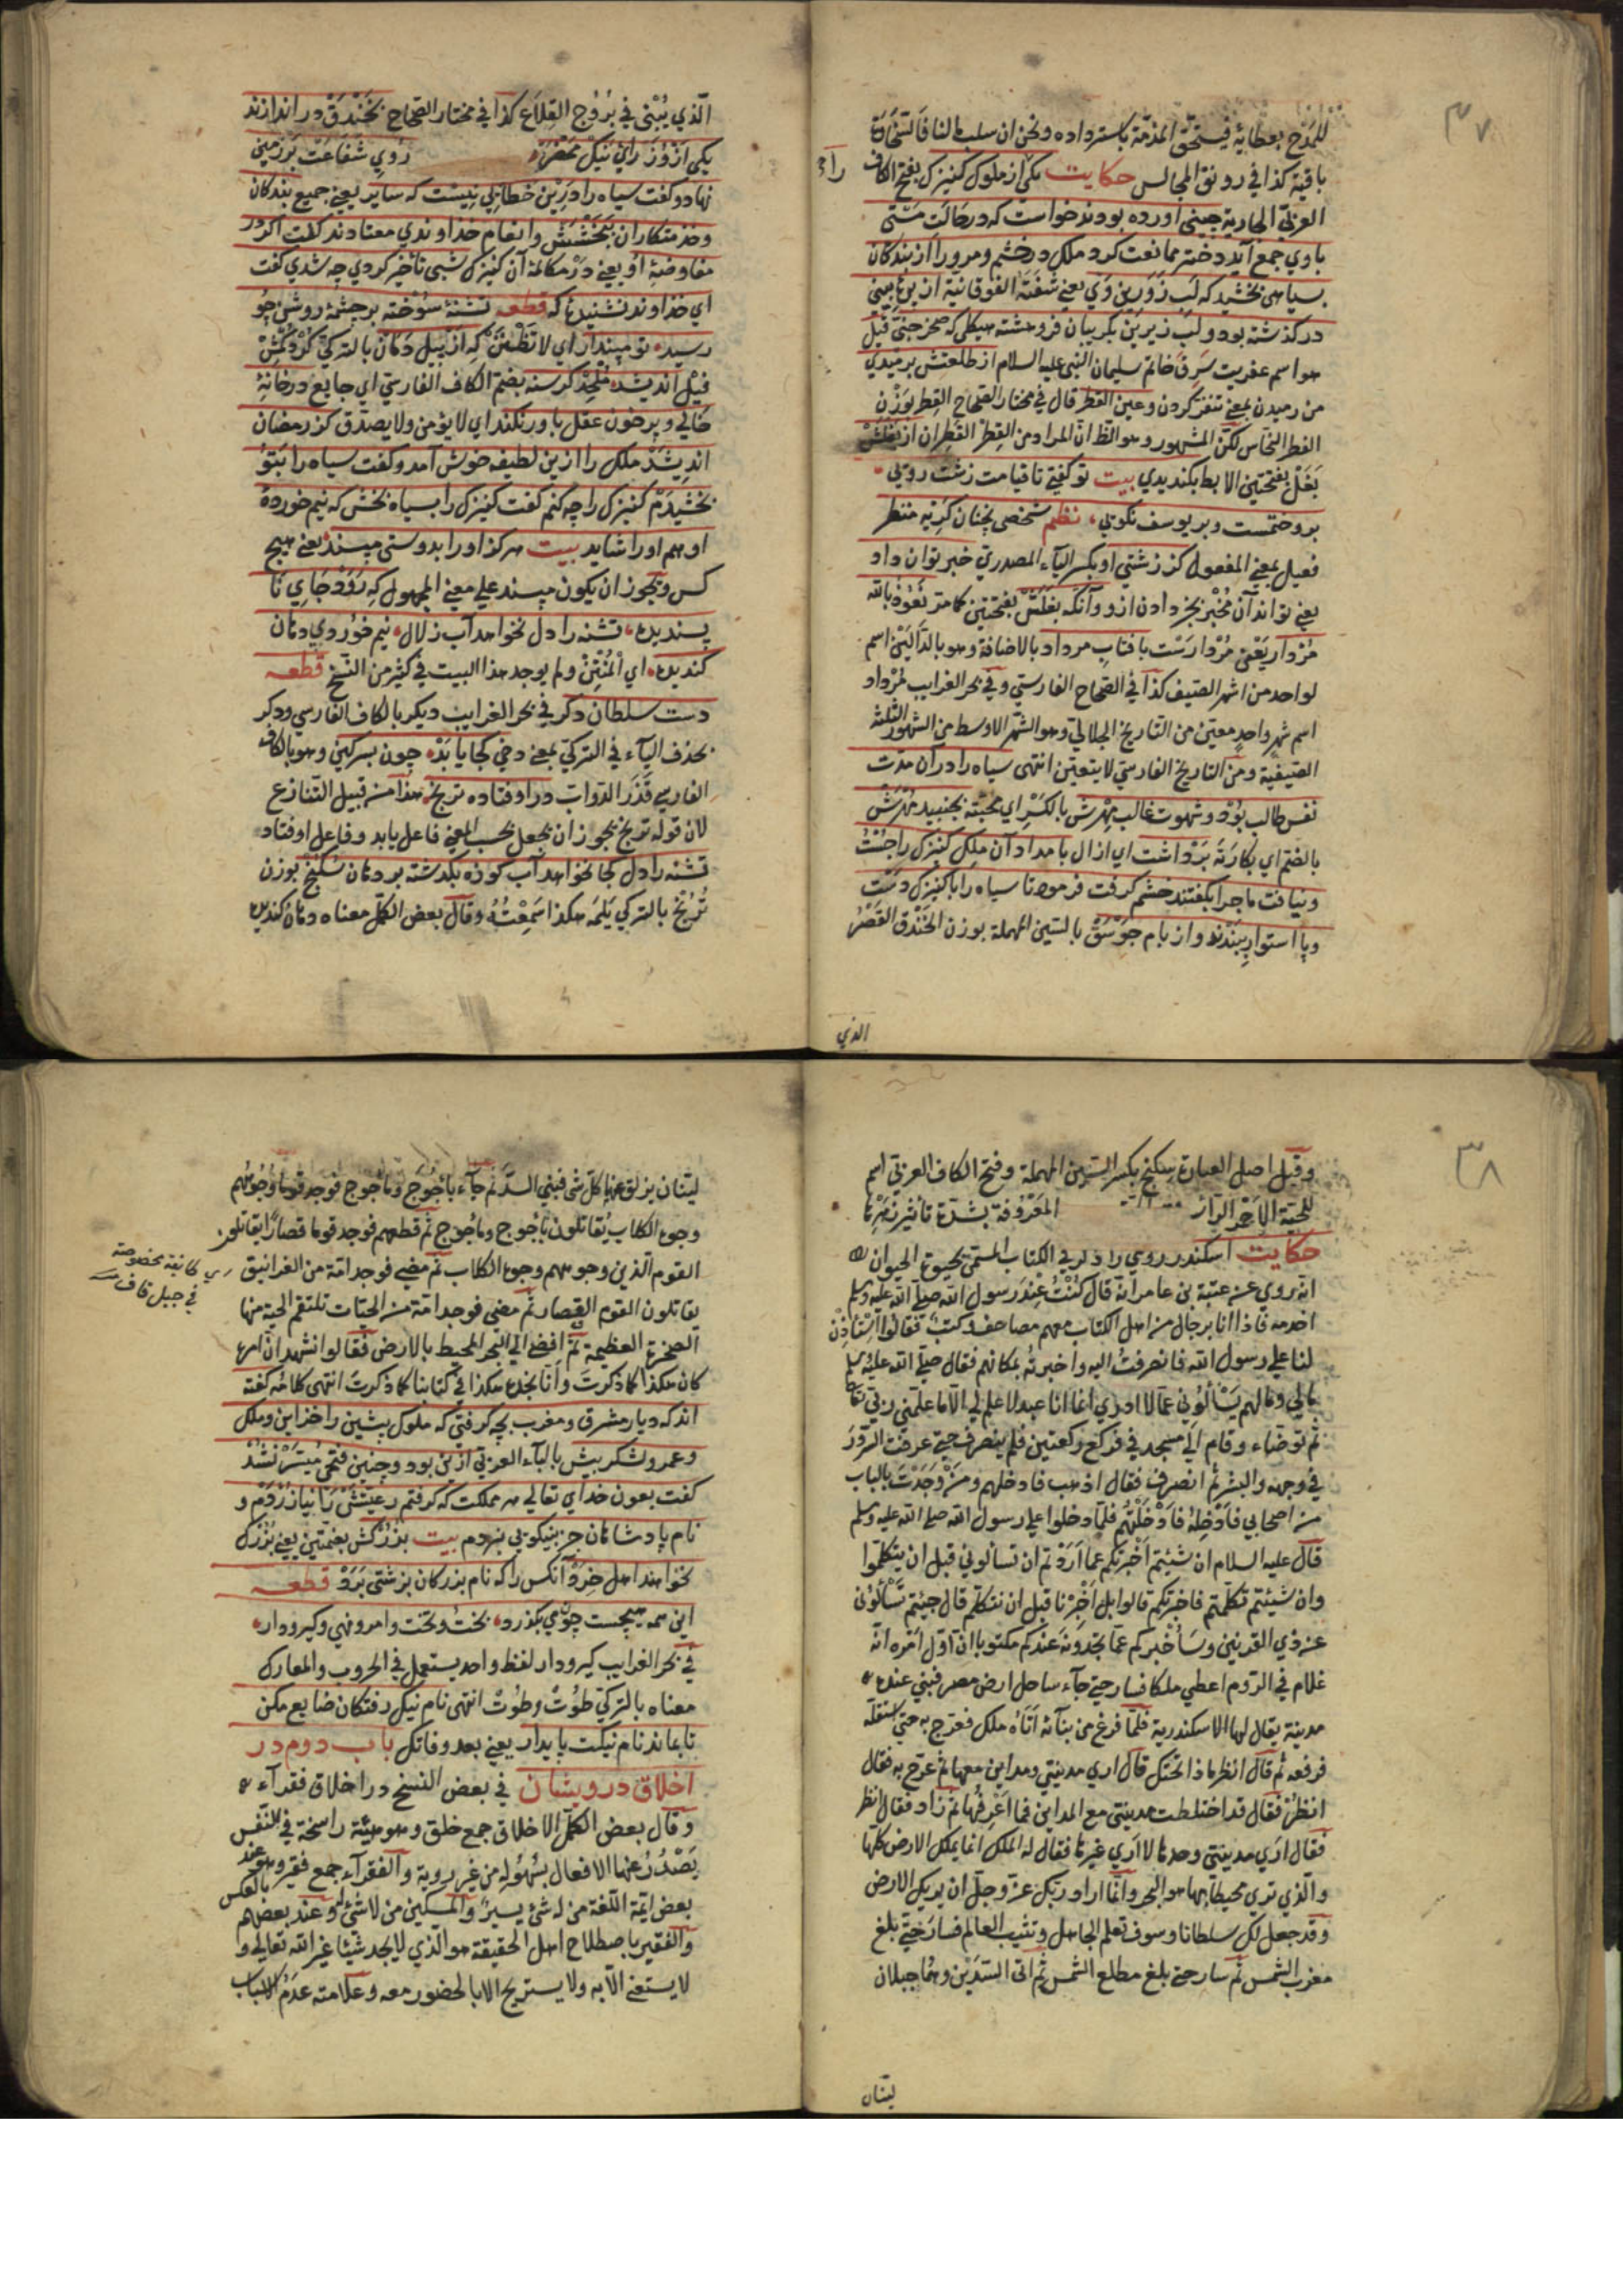 ٣٧
للمدح بعطايه فيستحق المذمة باسترداده ونحن ان سلب مالنا فالسخاوة
باقية كذا في رونق المجالس حكايت يكى از ملوك كنيزك بفتح الكاف
العربى الجارية چينى اورده بودند خواست كه در حالت مستى
باوي جمع آيد دختر ممانعت كرد ملك در خشم و مرورا از بندكان
بسياهى بخشيد كه لب زورين وى يعنى شفته الفوقانية از پره بينى
در كذشته بود ولب زيرين بكريبان فروهشته هيكلى كه صخر جنى قيل
هو اسم عفريت سرق خاتم سليمان النبى عليه السلام از طلعتش برميدي
من رميدن بمعنى تنفر كردن وعين القطر قال في مختار الصحاح القطر بوزن
الفطر النحاس لكن المشهور وهو الظ ان المراد من القطر القطران از بغلش
بغل بفتحتين الابط بكنديدي بيت توكفتى تا قيامت زشت رويى
برو ختمست وبر يوسف نكويى نظم شخصى نچنان كريه منظر
فعيل بمعنى المفعول كز زشتى او بكسر الياء المصدري خبر توان داد
يعنى تواند آن مخبر خبر دادن ازو وآنكه بغلش بفتحتين كما مر نعوذ بالله
مردار يعنى مردارست بافتاب مرداد بالاضافة وهو بالدالين اسم
لواحد من اشهر الصيف كذا في الصحاح الفارسي وفي بحر الغرايب مرداد
اسم شهر واحد معين من التاريخ الجلالي وهو الشهر الاوسط من الشهور الثلثة
الصيفية ومن التاريخ الفارسي لا يتعين انتهى سياه را در ان مدت
نفس طالب بود وشهوت غالب مهرش بالكسر اي محبته بجنبيد مهرش
بالضم اي بكارته برداشت اي ازال بامدادان ملك كنيزك را جست
ونيافت ماجرا بكفتند خشم كرفت فرمود تا سياه را با كنيزك دست
وپا استوار ببندند واز بام جوسق بالسين المهملة بوزن الخندق القصر
الذي
الذي يبنى في بروج القلاع كذا في مختار الصحاح بخندق در اندازند
يكى از وزراى نيك محضر روي شفاعت بر زمين
نهاد وكفت سياه را درين خطايى نيست كه ساير يعنى جميع بندكان
وخدمتكاران ببخشش وانعام خداوندي معتادند كفت اكر در
مفاوضهٔ او يعنى در مكالمة آن كنيزك شبى تأخير كردي چه شدي كفت
اي خداوند نشنيدهٔ كه قطعه تشنهٔ سوخته بر چشمهٔ روشن چو
رسيد تو مپندار اي لا تظنن كه از پيل دمان بالتركي كوكرمش
فيل انديشد ملحد كرسنه بضم الكاف الفارسي اي جايع در خانهٔ
خالي وپر خون عقل باور نكند اي لا يؤمن ولا يصدق كز رمضان
انديشد ملك را ازين لطيفه خوش آمد وكفت سياه را بتو
بخشيدم كنيزك را چه كنم كفت كنيزك را بسياه بخش كه نيم خوردهٔ
او هم اورا شايد بيت هركز اورا بدوستى مپسند يعنى هيچ
كس ويجوز ان يكون مپسند على معنى المجهول كه رود جاي نا
پسنديده تشنه را دل نخواهد آب زلال نيم خوردي دهان
كنديده اي المنتن ولم يوجد هذا البيت في كثير من النسخ قطعه
دست سلطان دكر في بحر الغرايب ديكر بالكاف الفارسي ودكر
بحذف الياء في التركي بمعنى دخي كجا يابد چون بسركين وهو بالكاف
الفارسي قذر الدواب در اوفتاده ترنج هذا من قبيل التنازع
لان قوله ترنج يجوز ان يجعل بحسب المعنى فاعل يابد وفاعل اوفتاد
تشنه را دل كجا نخواهد آب كوزه بكدشته بر دهان سكنج بوزن
ترنج بالتركي يلمه هكذا سمعته وقال بعض الكمل معناه دهان كنديده
٣٨
وقيل اصل العبارة سكنج بكسر السين المهملة وفتح الكاف العربي اسم
للحية الاخر الراز المعروفة بشدة تأثير زهرها
حكايت اسكندر رومي را ذكر في الكتاب المسمى بحيوة الحيوان
انه روي عن عتبة بن عامر انه قال كنت عند رسول الله صلى الله عليه وسلم
اخدمه فاذا انا برجال من اهل الكتاب معهم مصاحف وكتب فقالوا استأذن
لنا على رسول الله فانصرفت اليه واخبرته بمكانهم فقال صلى الله عليه وسلم
مالي ومالهم يسألوني عما لا ادري انما انا عبد لا علم لي الا ما علمني ربي تعا
ثم توضاء وقام الى مسجد في فركع ركعتين فلم ينصرف حتى عرفت السرور
في وجهه والبشر ثم انصرف فقال اذهب فادخلهم ومن وجدت بالباب
من اصحابي فادخله فادخلتهم فلما دخلوا على رسول الله صلى الله عليه وسلم
قال عليه السلام ان شيئتم اخبرتكم عما اردتم ان تسألوني قبل ان يتكلموا
وان شيئتم تكلمتم فاخبرتكم قالوا بل اخبرنا قبل ان نتكلم قال جيئتم تسألوني
عن ذي القرنين وسأخبركم عما تجدونه عندكم مكتوبا ان اول امره انه
غلام في الروم اعطي ملكا فسار حتى جآء ساحل ارض مصر فبني عنده
مدينة يقال لها الاسكندرية فلما فرغ من بنائه اتاه ملك فعرج به حتى استقله
فرفعه ثم قال انظر ماذا تحتك قال اري مدينتي ومداين معها ثم عرج به فقال
انظر فقال قد اختلطت مدينتي مع المداين فما اعرفها ثم زاد فقال انظر
فقال ارى مدينتي وحدها لا اري غيرها فقال له الملك انما يملك الارض كلها
والذي تري محيطا بها هو البحر وانما اراد ربك عز وجل ان يريك الارض
وقد جعل لك سلطانا وسوف تعلم الجاهل وتثبت العالم فسار حتى بلغ
مغرب الشمس ثم سار حتى بلغ مطلع الشمس ثم اتى السدين وهما جبلان
لينان
لينان يزلق عنها كل شى فبني السد ثم جآء ياجوج وماجوج فوجد قوما وجوههم
وجوه الكلاب يقاتلون ياجوج وماجوج ثم قطعهم فوجد قوما قصارا يقاتلون
القوم الذين وجوههم وجوه الكلاب ثم مضى فوجد امة من الغرانيق
يقاتلون القوم القصار ثم مضى فوجد امة من الحيات تلتقم الحية منها
الصخرة العظيمة ثم افضى الى البحر المحيط بالارض فقالوا نشهد ان امره
كان هكذا كما ذكرت وانا نجده هكذا في كتابنا كما ذكرت انتهى كلامه كفته
اند كه ديار مشرق ومغرب بچه كرفتى كه ملوك پيشين را خزاين وملك
وعمر ولشكر بيش بالباء العربي ازين بود وچنين فتحى ميسر نشد
كفت بعون خداي تعالى هر مملكت كه كرفتم رعيتش را نيازردم و
نام پادشاهان جز بنيكويى نبردم بيت بزركش بضمتين يعنى بزرك
نخواهند اهل خرد آنكس را كه نام بزركان بزشتى برد قطعه
اين همه هيچست چون مي بكذرد بخت وتخت وامر ونهي وكير ودار
في بحر الغرايب كيرودار لفظ واحد يستعمل في الحروب والمعارك
معناه بالتركي طوت وطوت انتهى نام نيك رفتكان ضايع مكن
تا بماند نام نيكت پايدار يعنى بعد وفاتك باب دوم در
اخلاق درويشان في بعض النسخ در اخلاق فقرآء
وقال بعض الكمل الاخلاق جمع خلق وهو هيئة راسخة في النفس
يصدر عنها الافعال بسهولة من غير روية والفقرآء جمع فقير وهو عند
بعض ائمة اللغة من له شئ يسير والمسكين من لا شئ له وعند بعضهم بالعكس
والفقير باصطلاح اهل الحقيقة هو الذي لا يجد شيئا غير الله تعالى ولا
لا يستغنى الا به ولا يستريح الا بالحضور معه وعلامته عدم الاسباب
في جبل قاف